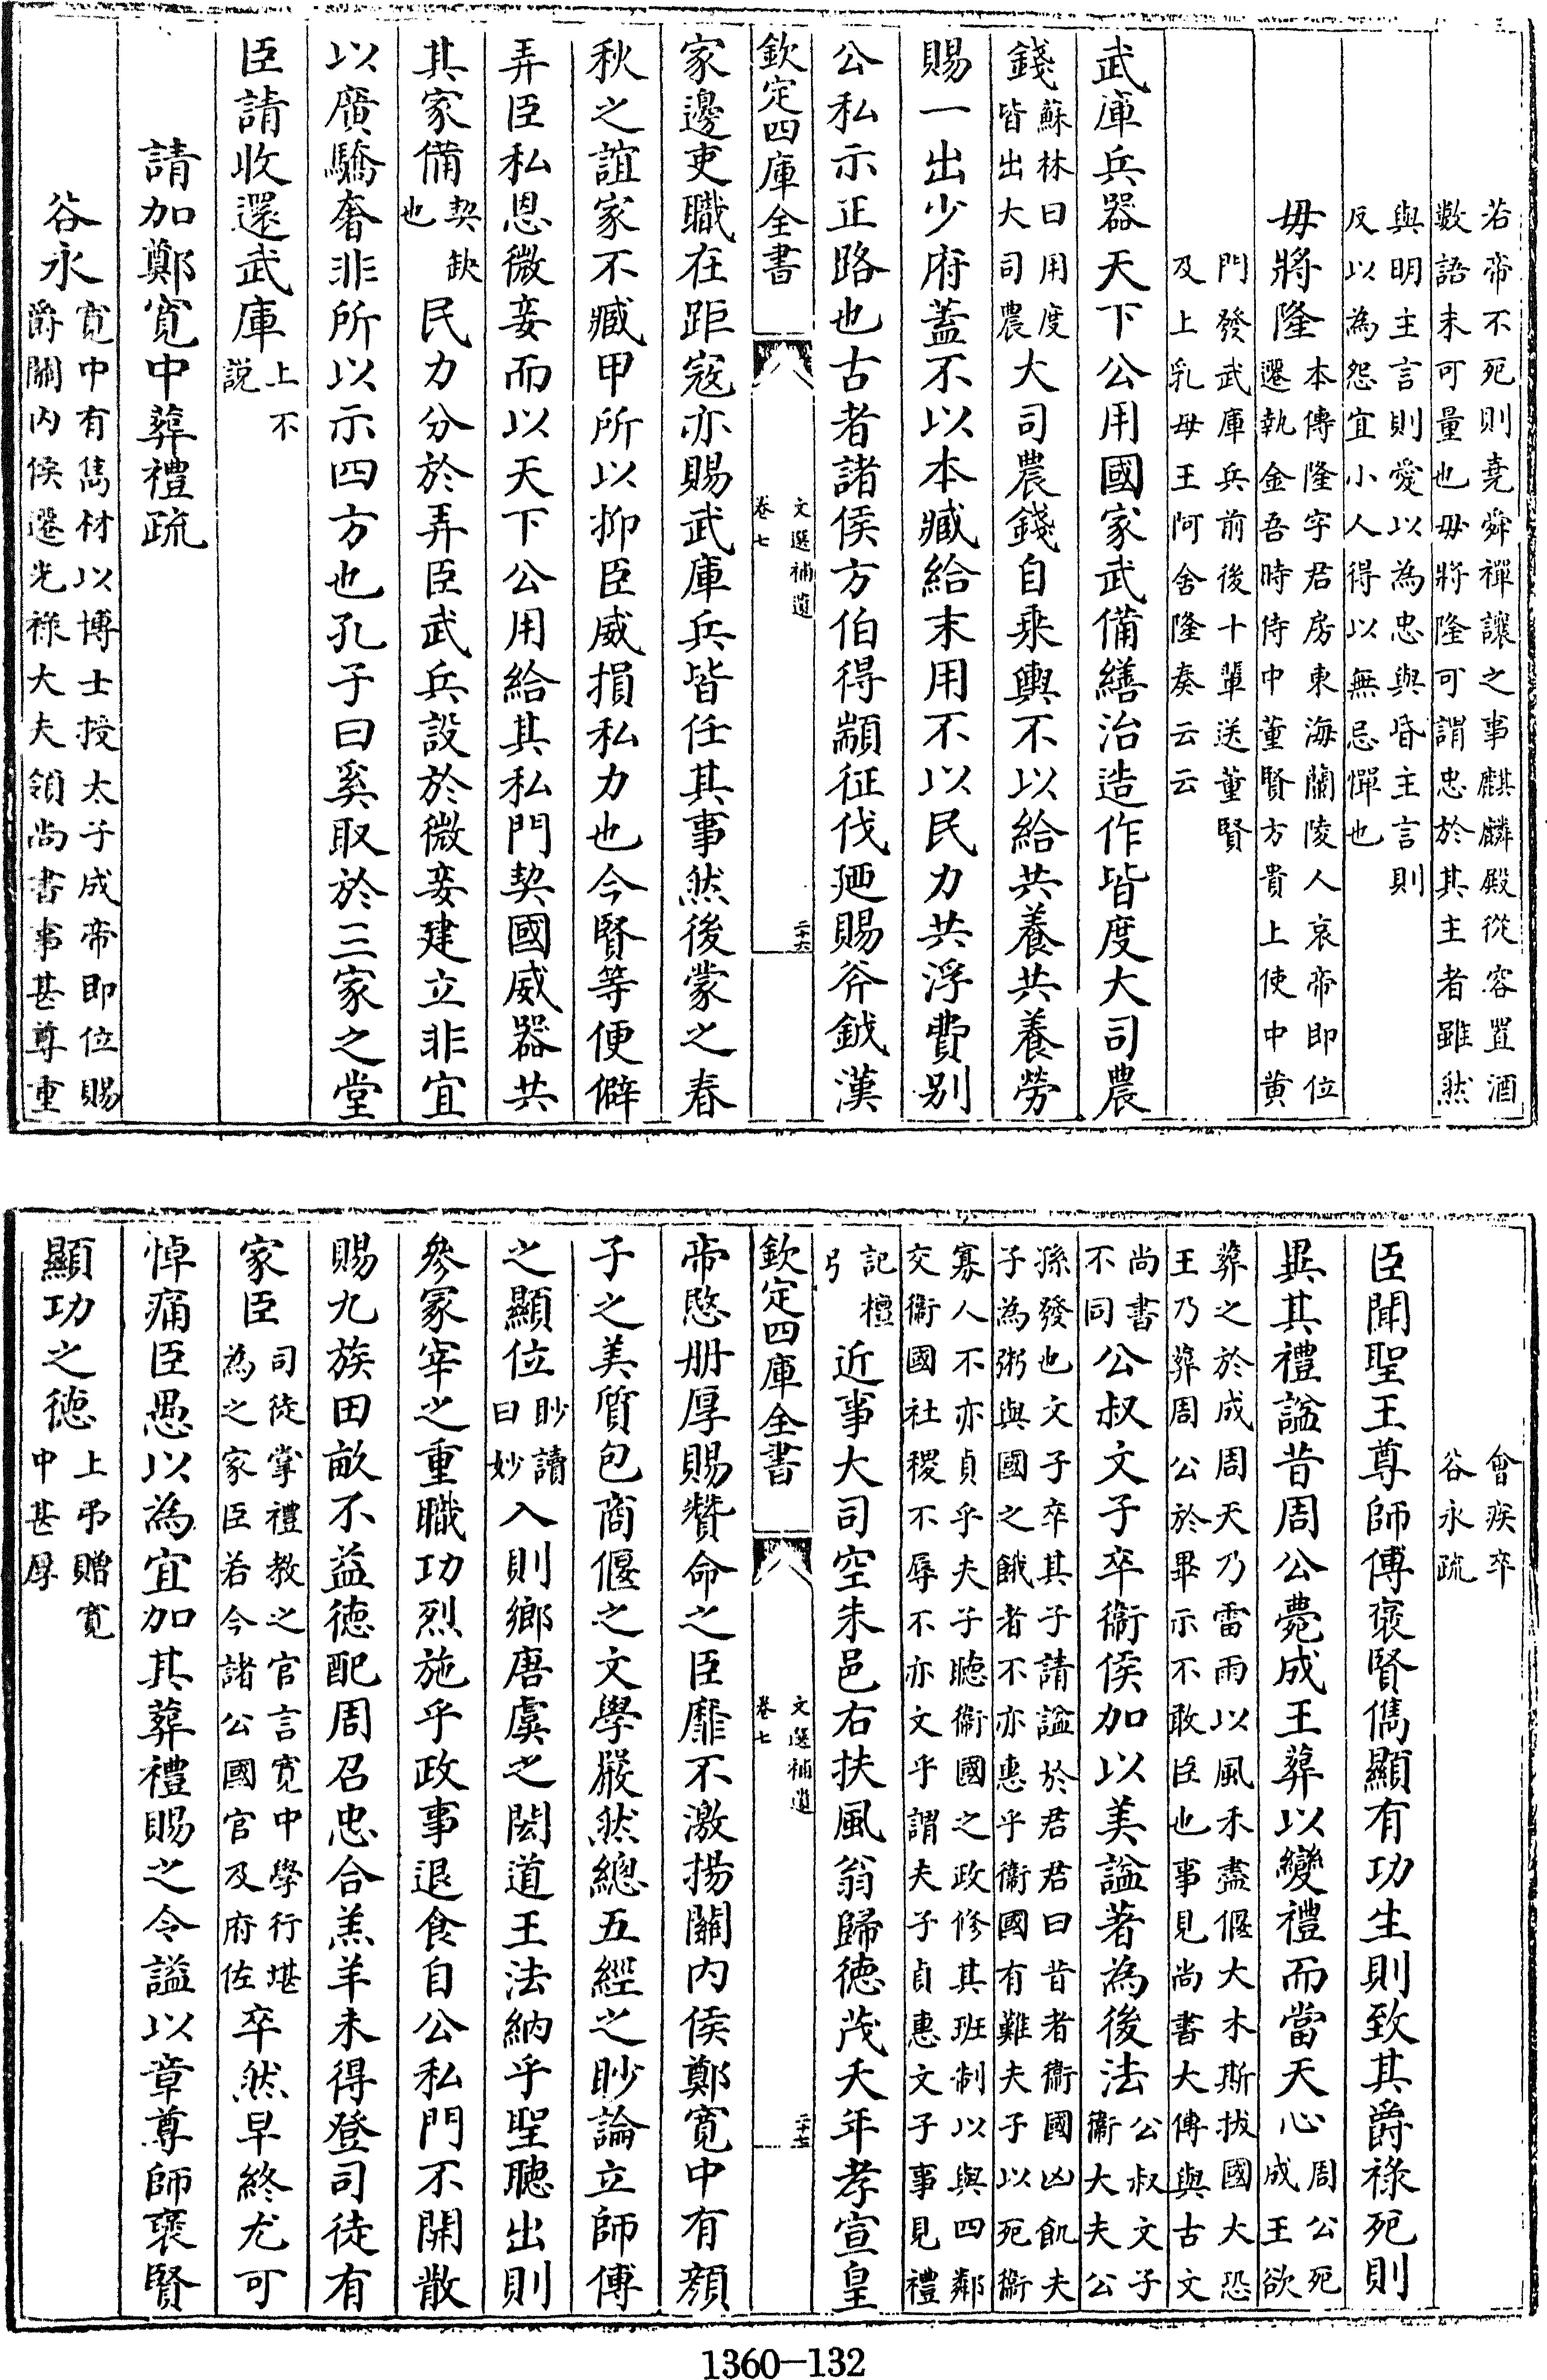 若帝不死則堯舜禪讓之事麒麟殿從容置酒
數語未可量也毋將隆可謂忠於其主者雖然
與明主言則愛以為忠與昏主言則
反以為怨宜小人得以無忌憚也
毋將隆本傳隆字君房東海蘭陵人哀帝即位
遷執金吾時侍中董賢方貴上使中黃
門發武庫兵前後十輩送董賢
及上乳母王阿舍隆奏云云
武庫兵器天下公用國家武備繕治造作皆度大司農
錢蘇林曰用度皆出大司農大司農錢自乘輿不以給共養共養勞
賜一出少府蓋不以本臧給末用不以民力共浮費別
公私示正路也古者諸侯方伯得顓征伐廼賜斧鉞漢
欽定四庫全書
文選補遺
卷七
二十六
家邊吏職在距寇亦賜武庫兵皆任其事然後蒙之春
秋之誼家不臧甲所以抑臣威損私力也今賢等便僻
弄臣私恩微妾而以天下公用給其私門契國威器共
其家備契缺也民力分於弄臣武兵設於微妾建立非宜
以廣驕奢非所以示四方也孔子曰奚取於三家之堂
臣請收還武庫上不說
請加鄭寬中葬禮疏
谷永寬中有雋材以博士授太子成帝即位賜
爵關內侯遷光祿大夫領尚書事甚尊重
會疾卒
谷永疏
臣聞聖王尊師傅褒賢儁顯有功生則致其爵祿死則
異其禮諡昔周公薨成王葬以變禮而當天心周公死成王欲
葬之於成周天乃雷雨以風禾盡偃大木斯拔國大恐
王乃葬周公於畢示不敢臣也事見尚書大傳與古文
尚書不同公叔文子卒衞侯加以美諡著為後法公叔文子衞大夫公
孫發也文子卒其子請諡於君君曰昔者衞國凶飢夫
子為粥與國之餓者不亦惠乎衞國有難夫子以死衞
寡人不亦貞乎夫子聽衞國之政修其班制以與四鄰
交衞國社稷不辱不亦文乎謂夫子貞惠文子事見禮
記檀弓近事大司空朱邑右扶風翁歸德茂夭年孝宣皇
欽定四庫全書
文選補遺
卷七
二十七
帝愍册厚賜贊命之臣靡不激揚關內侯鄭寬中有顏
子之美質包商偃之文學嚴然總五經之眇論立師傅
之顯位眇讀曰妙入則鄉唐虞之閎道王法納乎聖聽出則
參冢宰之重職功烈施乎政事退食自公私門不開散
賜九族田畝不益德配周召忠合羔羊未得登司徒有
家臣司徒掌禮教之官言寬中學行堪為之家臣若今諸公國官及府佐卒然早終尤可
悼痛臣愚以為宜加其葬禮賜之令諡以章尊師褒賢
顯功之德上弔贈寬中甚厚
1360-132